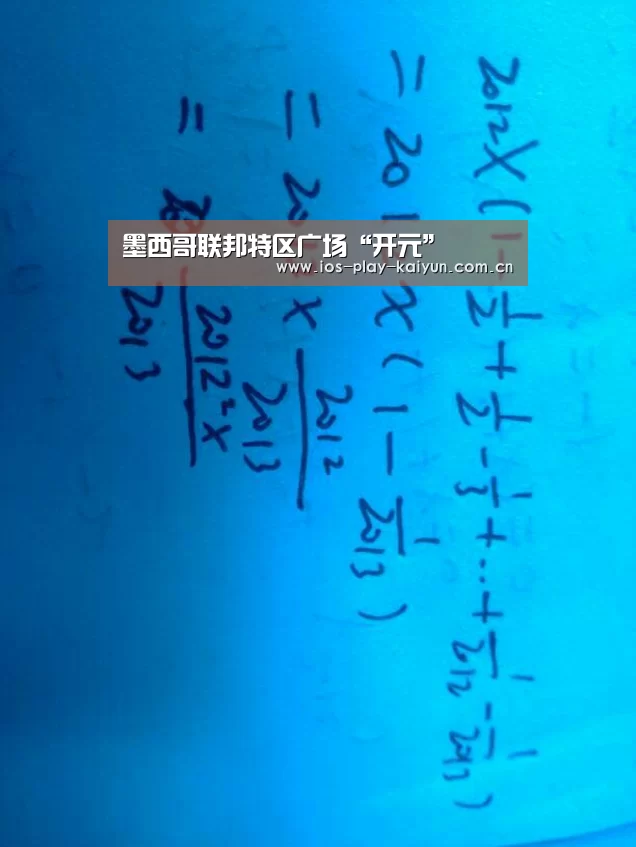 2012X(1-1/2+1/2-1/3+…+1/2012-1/2013)
=201 x(1-1/2013)
=20 x 2012/2013
= 2012²x/2013
墨西哥联邦特区广场“开元”
www.ios-play-kaiyun.com.cn